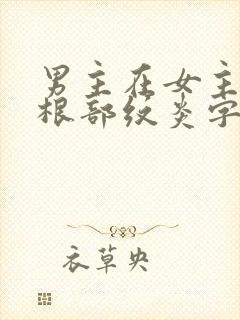 男主在女主
根部纹炎字
衣草央